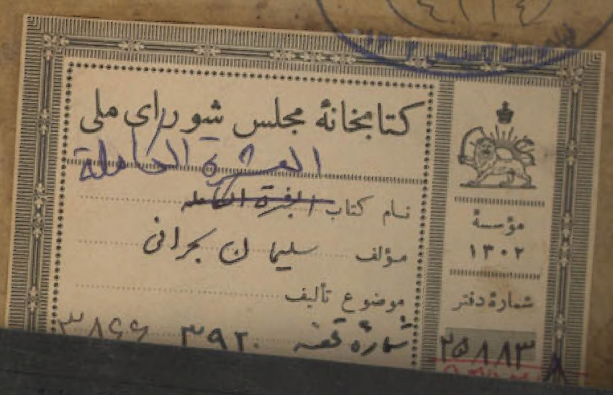 ۴۱۲۴
کتابخانهٔ مجلس شورای ملی
العشرة الکاملة
نام کتاب
مؤلف سلیمان بحرانی
موضوع تألیف
شمارهٔ قفسه ۳۹۲۰ ۳۸۶۶
مؤسسهٔ
۱۳۰۲
شمارهٔ دفتر
۲۵۸۸۳